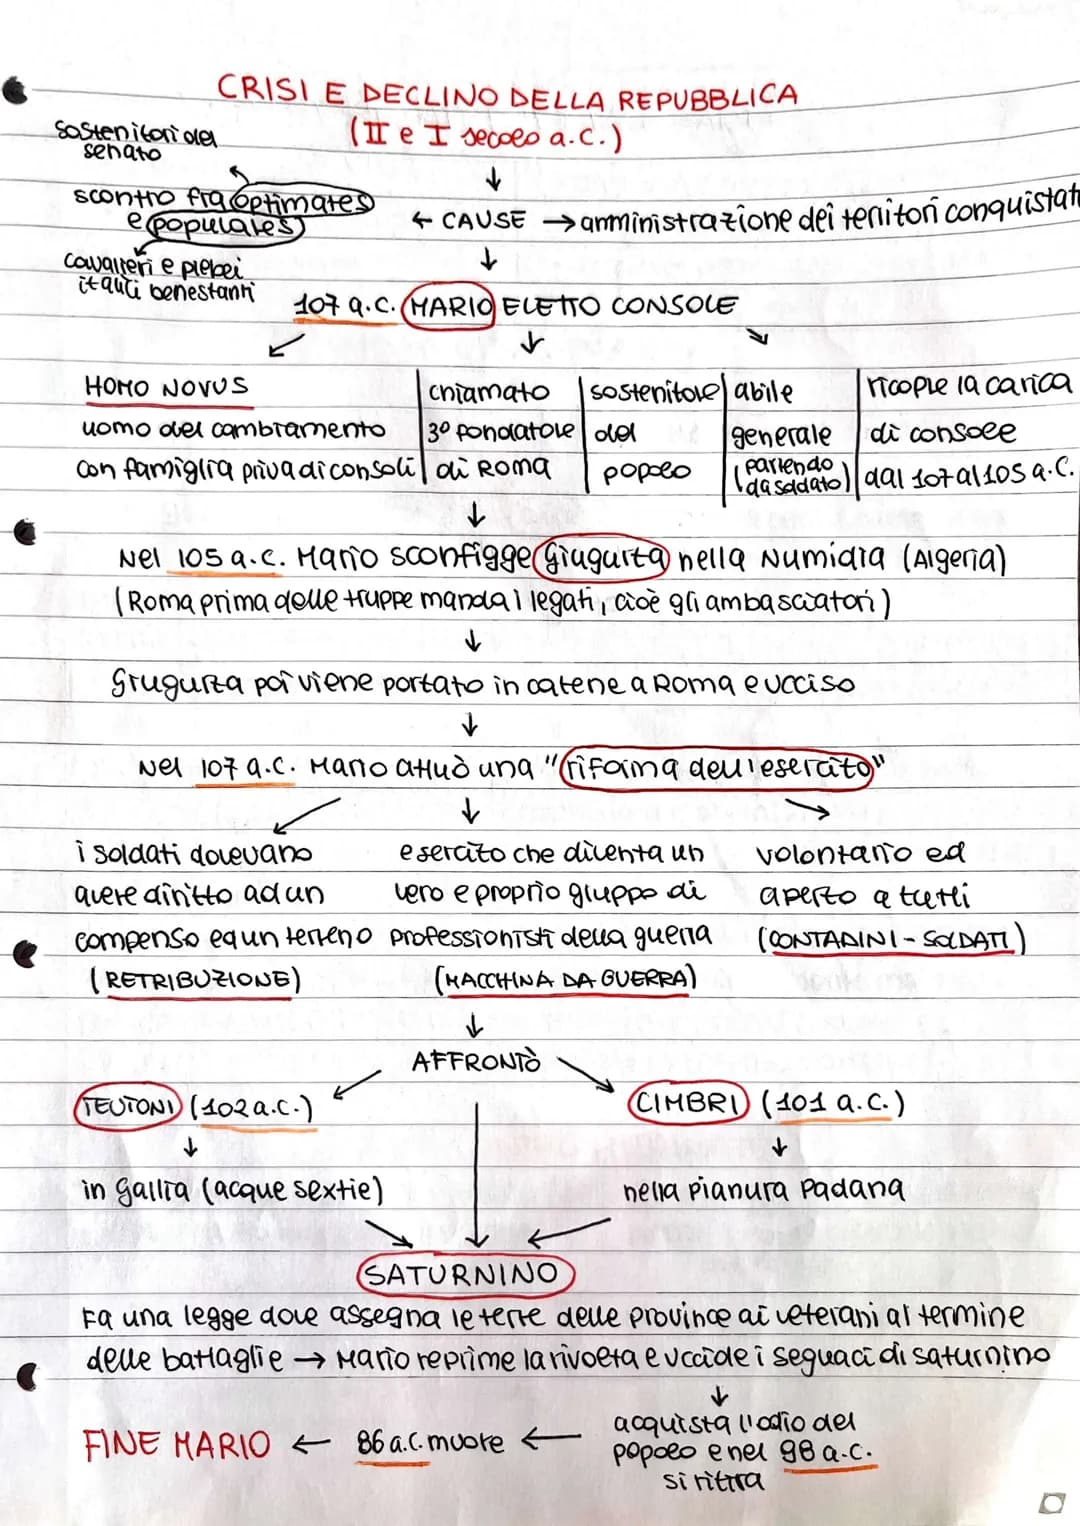 CRISI E DECLINO DELLA REPUBBLICA
(II e I secolo a.C.)
sostenitori del
senato
scontro fra optimates
e populares
← CAUSE → amministrazione dei territori conquistati
cavalieri e plebei
italici benestanti
107 a.C. MARIO ELETTO CONSOLE
HOMO NOVUS
uomo del cambiamento
con famiglia priva di consoli
chiamato
3º fondatore
di Roma
sostenitore
del
popolo
abile
generale
(partendo
da soldato)
ricopre la carica
di console
dal 107 al 105 a.C.
Nel 105 a.C. Mario sconfigge Giugurta nella Numidia (Algeria)
(Roma prima delle truppe manda i legati, cioè gli ambasciatori)
Giugurta poi viene portato in catene a Roma e ucciso
Nel 107 a.C. Mario attuò una "riforma dell'esercito"
i soldati dovevano
avere diritto ad un
compenso e a un terreno
(RETRIBUZIONE)
esercito che diventa un
vero e proprio gruppo di
professionisti della guerra
(MACCHINA DA GUERRA)
volontario ed
aperto a tutti
(CONTADINI - SOLDATI)
AFFRONTÒ
TEUTONI (102 a.C.)
in Gallia (acque sextie)
CIMBRI (101 a.C.)
nella pianura Padana
SATURNINO
Fa una legge dove assegna le terre delle province ai veterani al termine
delle battaglie → Mario reprime la rivolta e uccide i seguaci di Saturnino
acquista l'odio del
popolo e nel 98 a.C.
si ritira
FINE MARIO ← 86 a.C. muore ←